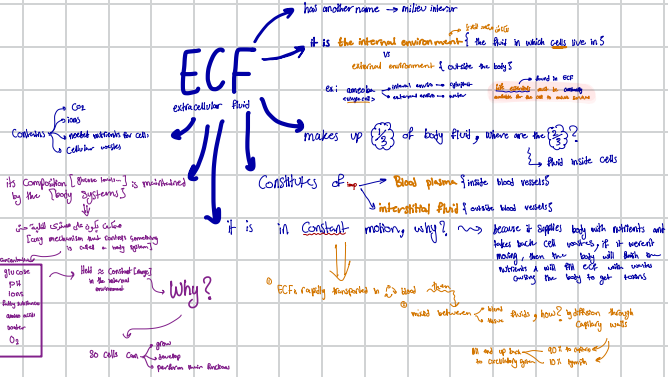 has another name → milieu interior
it is the internal environment { the fluid in which cells live in }
vs
external environment { outside the body }
ECF
extracellular fluid
ex: amoeba
internal enviro → cytoplasm
external enviro → water
found in ECF
Contains
CO2
ions
needed nutrients for cells
Cellular wastes
makes up 1/3 of body fluid, where are the 2/3 ?
fluid inside cells
its Composition [glucose, ions...] is maintained
by the [body systems]
Constitutes of
Blood plasma { inside blood vessels }
interstitial fluid { outside blood vessels }
it is in Constant motion, why?
because it supplies body with nutrients and
takes back cell wastes, if it weren't
moving, then the body will finish the
nutrients & will fill ECF with wastes
causing the body to get toxins
[any mechanism that controls something
is called a body system]
glucose
pH
ions
fatty substances
amino acids
water
O2
Held ≈ Constant
in the internal
environment
Why?
So cells can
grow
develop
perform their functions
① ECF is rapidly transported in blood then
② mixed between
blood
tissue
fluids, how? by diffusion through
Capillary walls
90% to
10% lymph